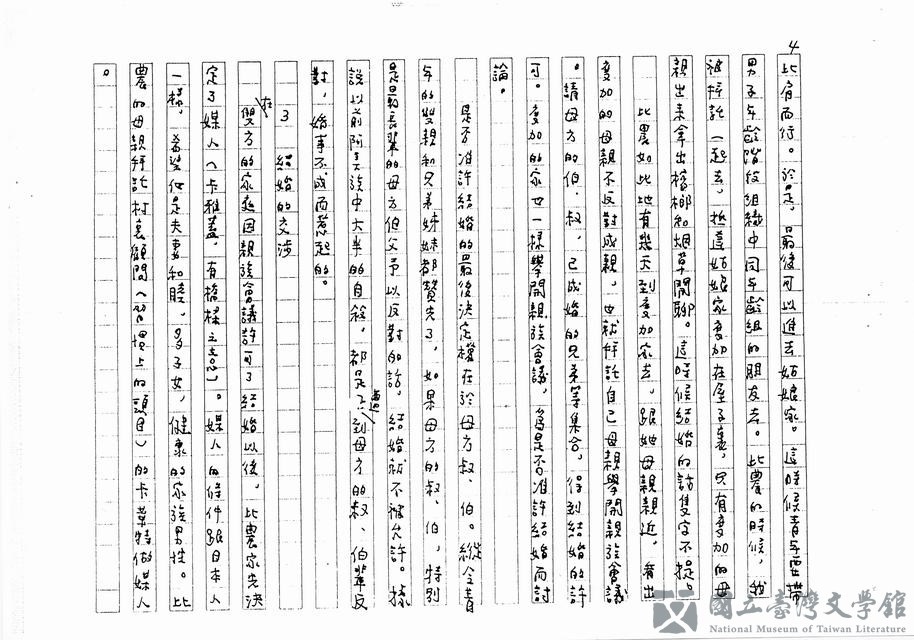 4
比肩而行。於是，最後可以進去姑娘家。這時候青年要帶
男子年齡階級組織中同年齡組的朋友去。比農的時候，我
被拜託一起去，抵達姑娘家麥加在屋子裏，只有麥加的母
親出來拿出檳榔和烟草閒聊。這時候結婚的話隻字不提。
比農如此地有幾天到麥加家去，跟她母親親近，看出
麥加的母親不反對成親，也就拜託自己母親舉開親族會議
。請母方的伯、叔，已成婚的兄弟等集合，得到結婚的許
可。麥加的家也一樣舉開親族會議，為是否准許結婚而討
論。
是否准許結婚的最後決定權在於母方叔、伯。縱令青
年的雙親和兄弟姊妹都贊失了，如果母方的叔、伯，特別
是最長輩的母方伯父予以反對的話，結婚就不被允許。據
說以前阿美族中大半的自殺，都是遭到母方的叔、伯輩反
對，婚事不成而惹起的。
3 結婚的交涉
在雙方的家庭因親族會議許可了結婚以後，比農家先決
定了媒人（卡雅蓋，有橋樑之意）。媒人的條件跟日本人
一樣，希望似是夫妻和睦，多子女，健康的家族男性。比
農的母親拜託村裏顧問（習慣上的頭目）的卡華特做媒人
。
國立臺灣文學館
National Museum of Taiwan Literature